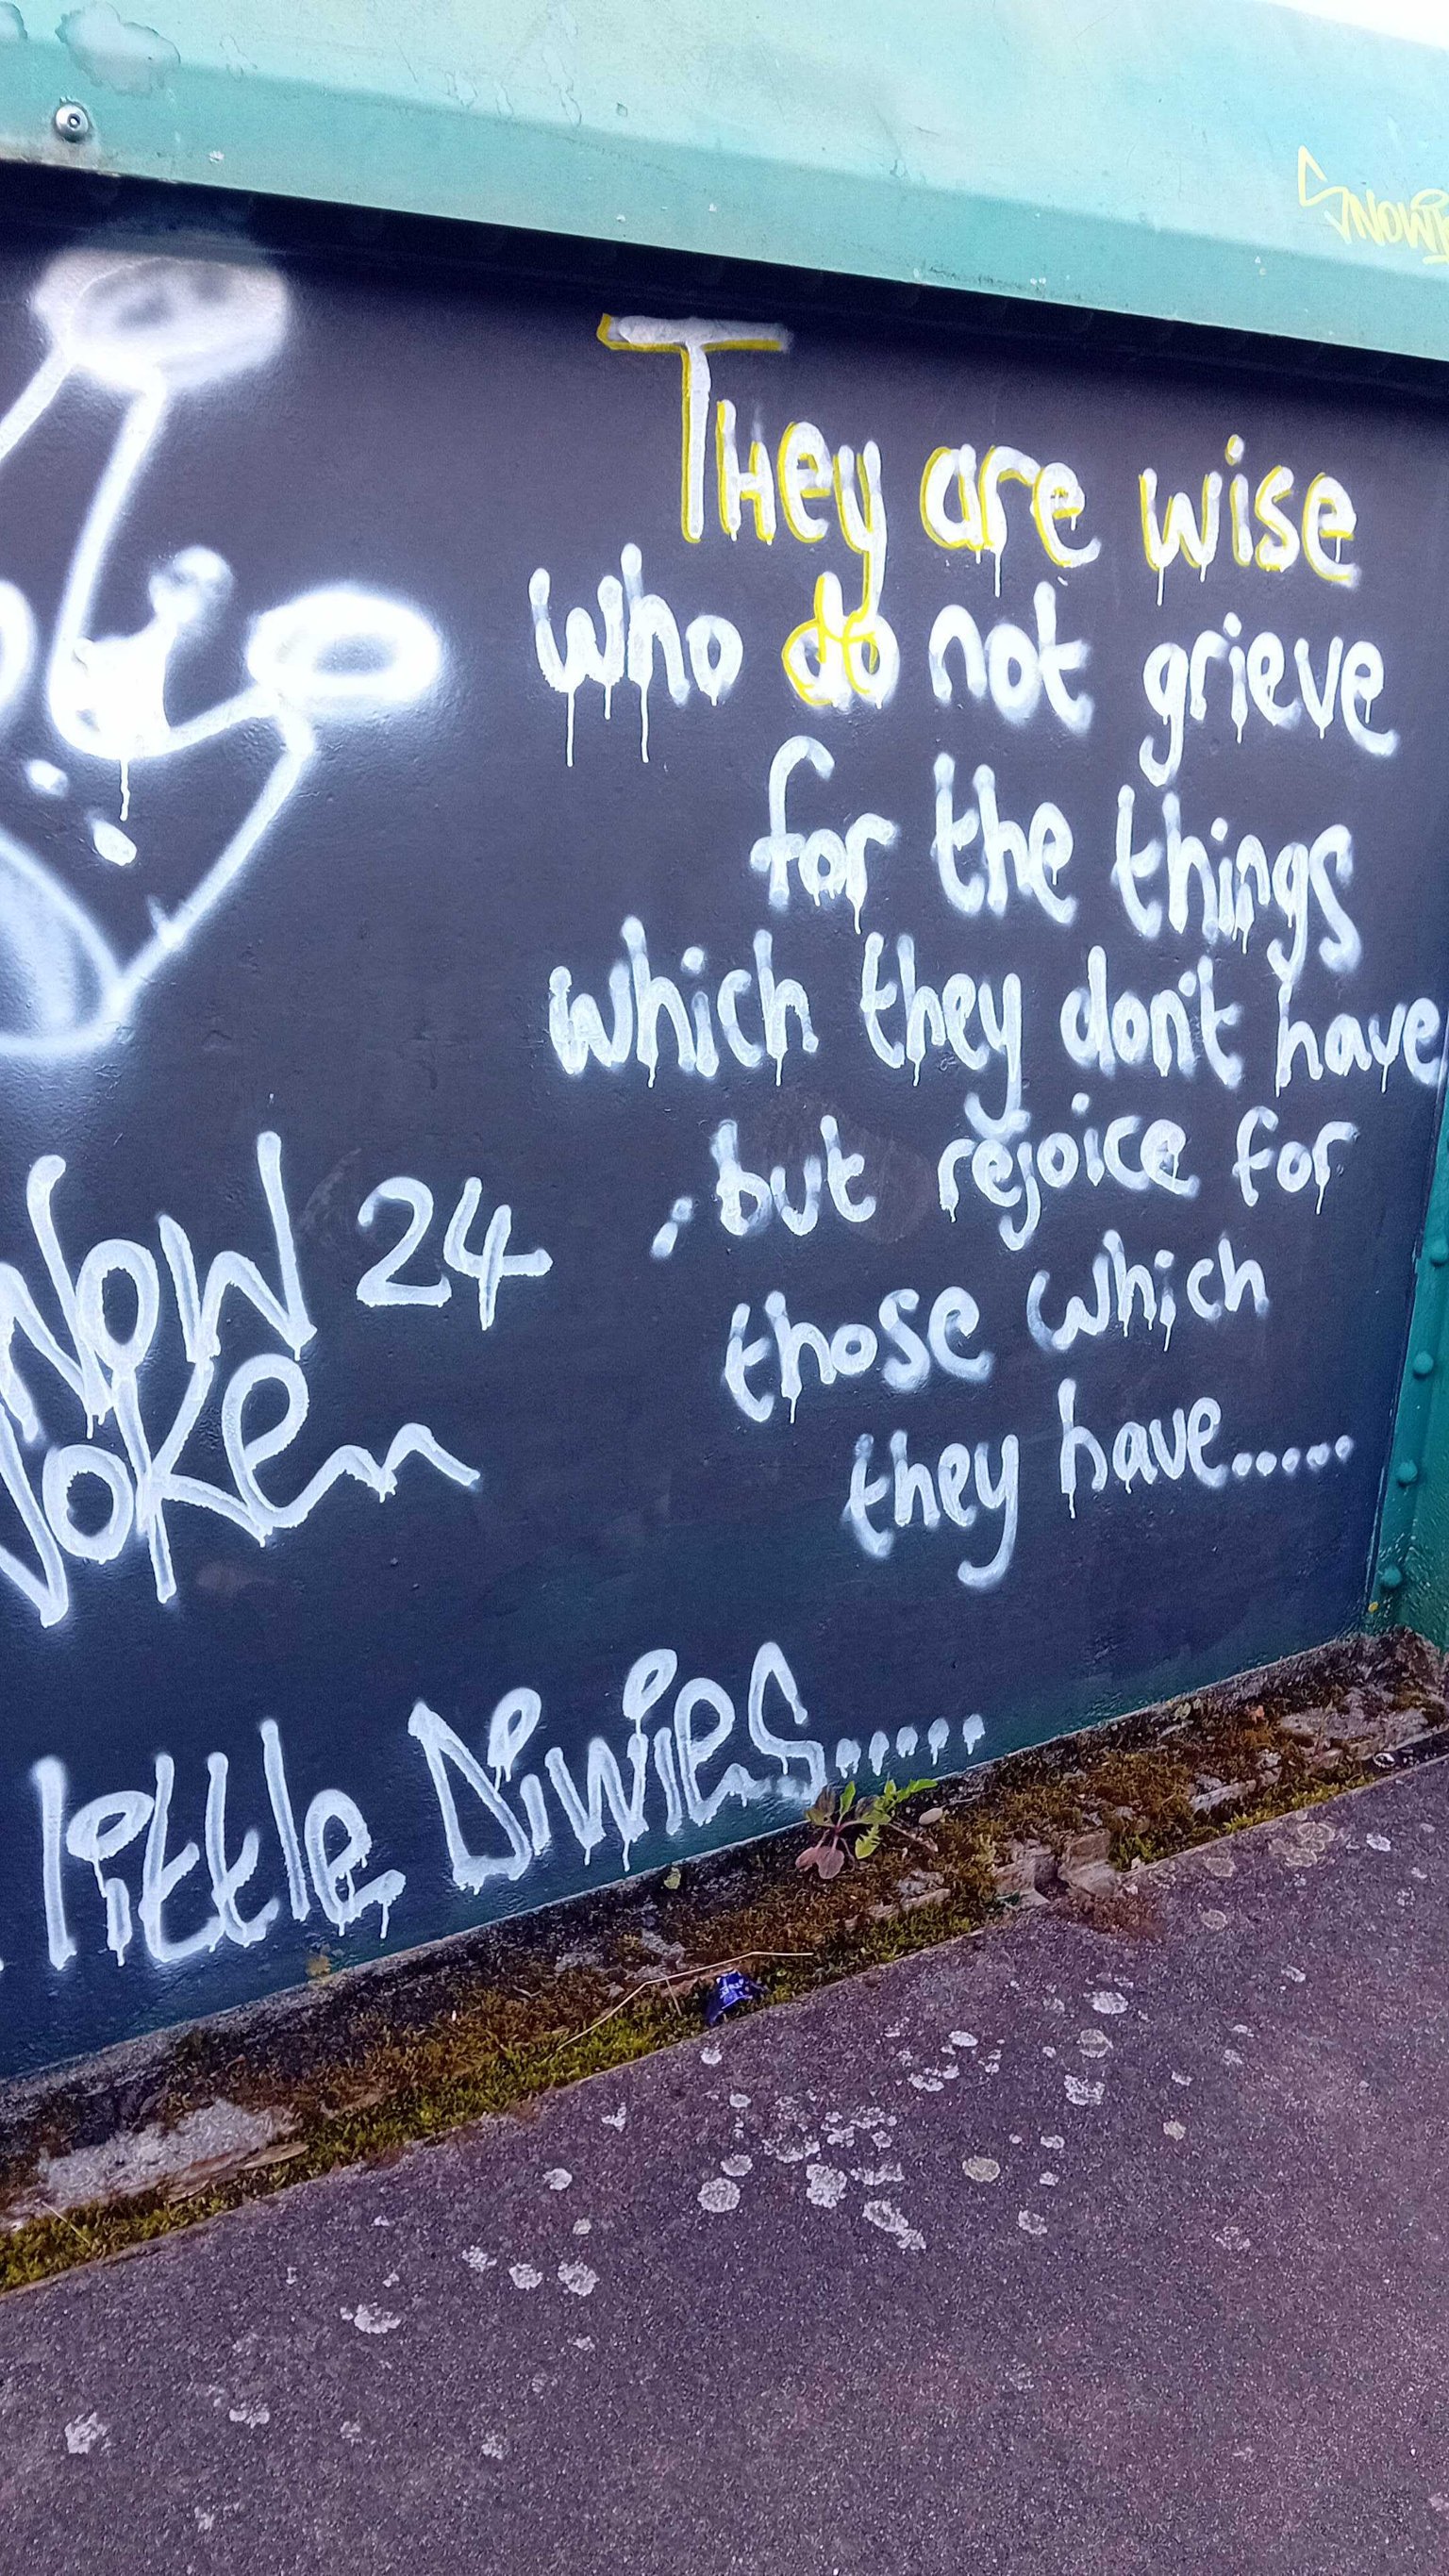 THey are wise
who do not grieve
for the things
which they don't have
, but rejoice for
those which
they have.....
NOW 24
little Diwies.....